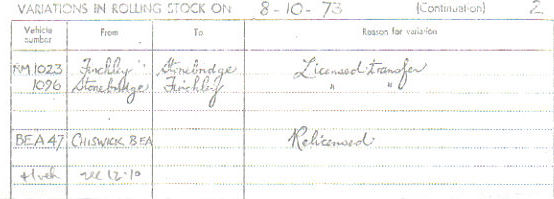 VARIATIONS IN ROLLING STOCK ON 8-10-73 (Continuation) 2
Vehicle number From To Reason for variation
RM 1023 Finchley Stonebridge Licensed transfer
1096 Stonebridge Finchley " "
BEA 47 CHISWICK BEA Relicensed
+1 veh 12-10